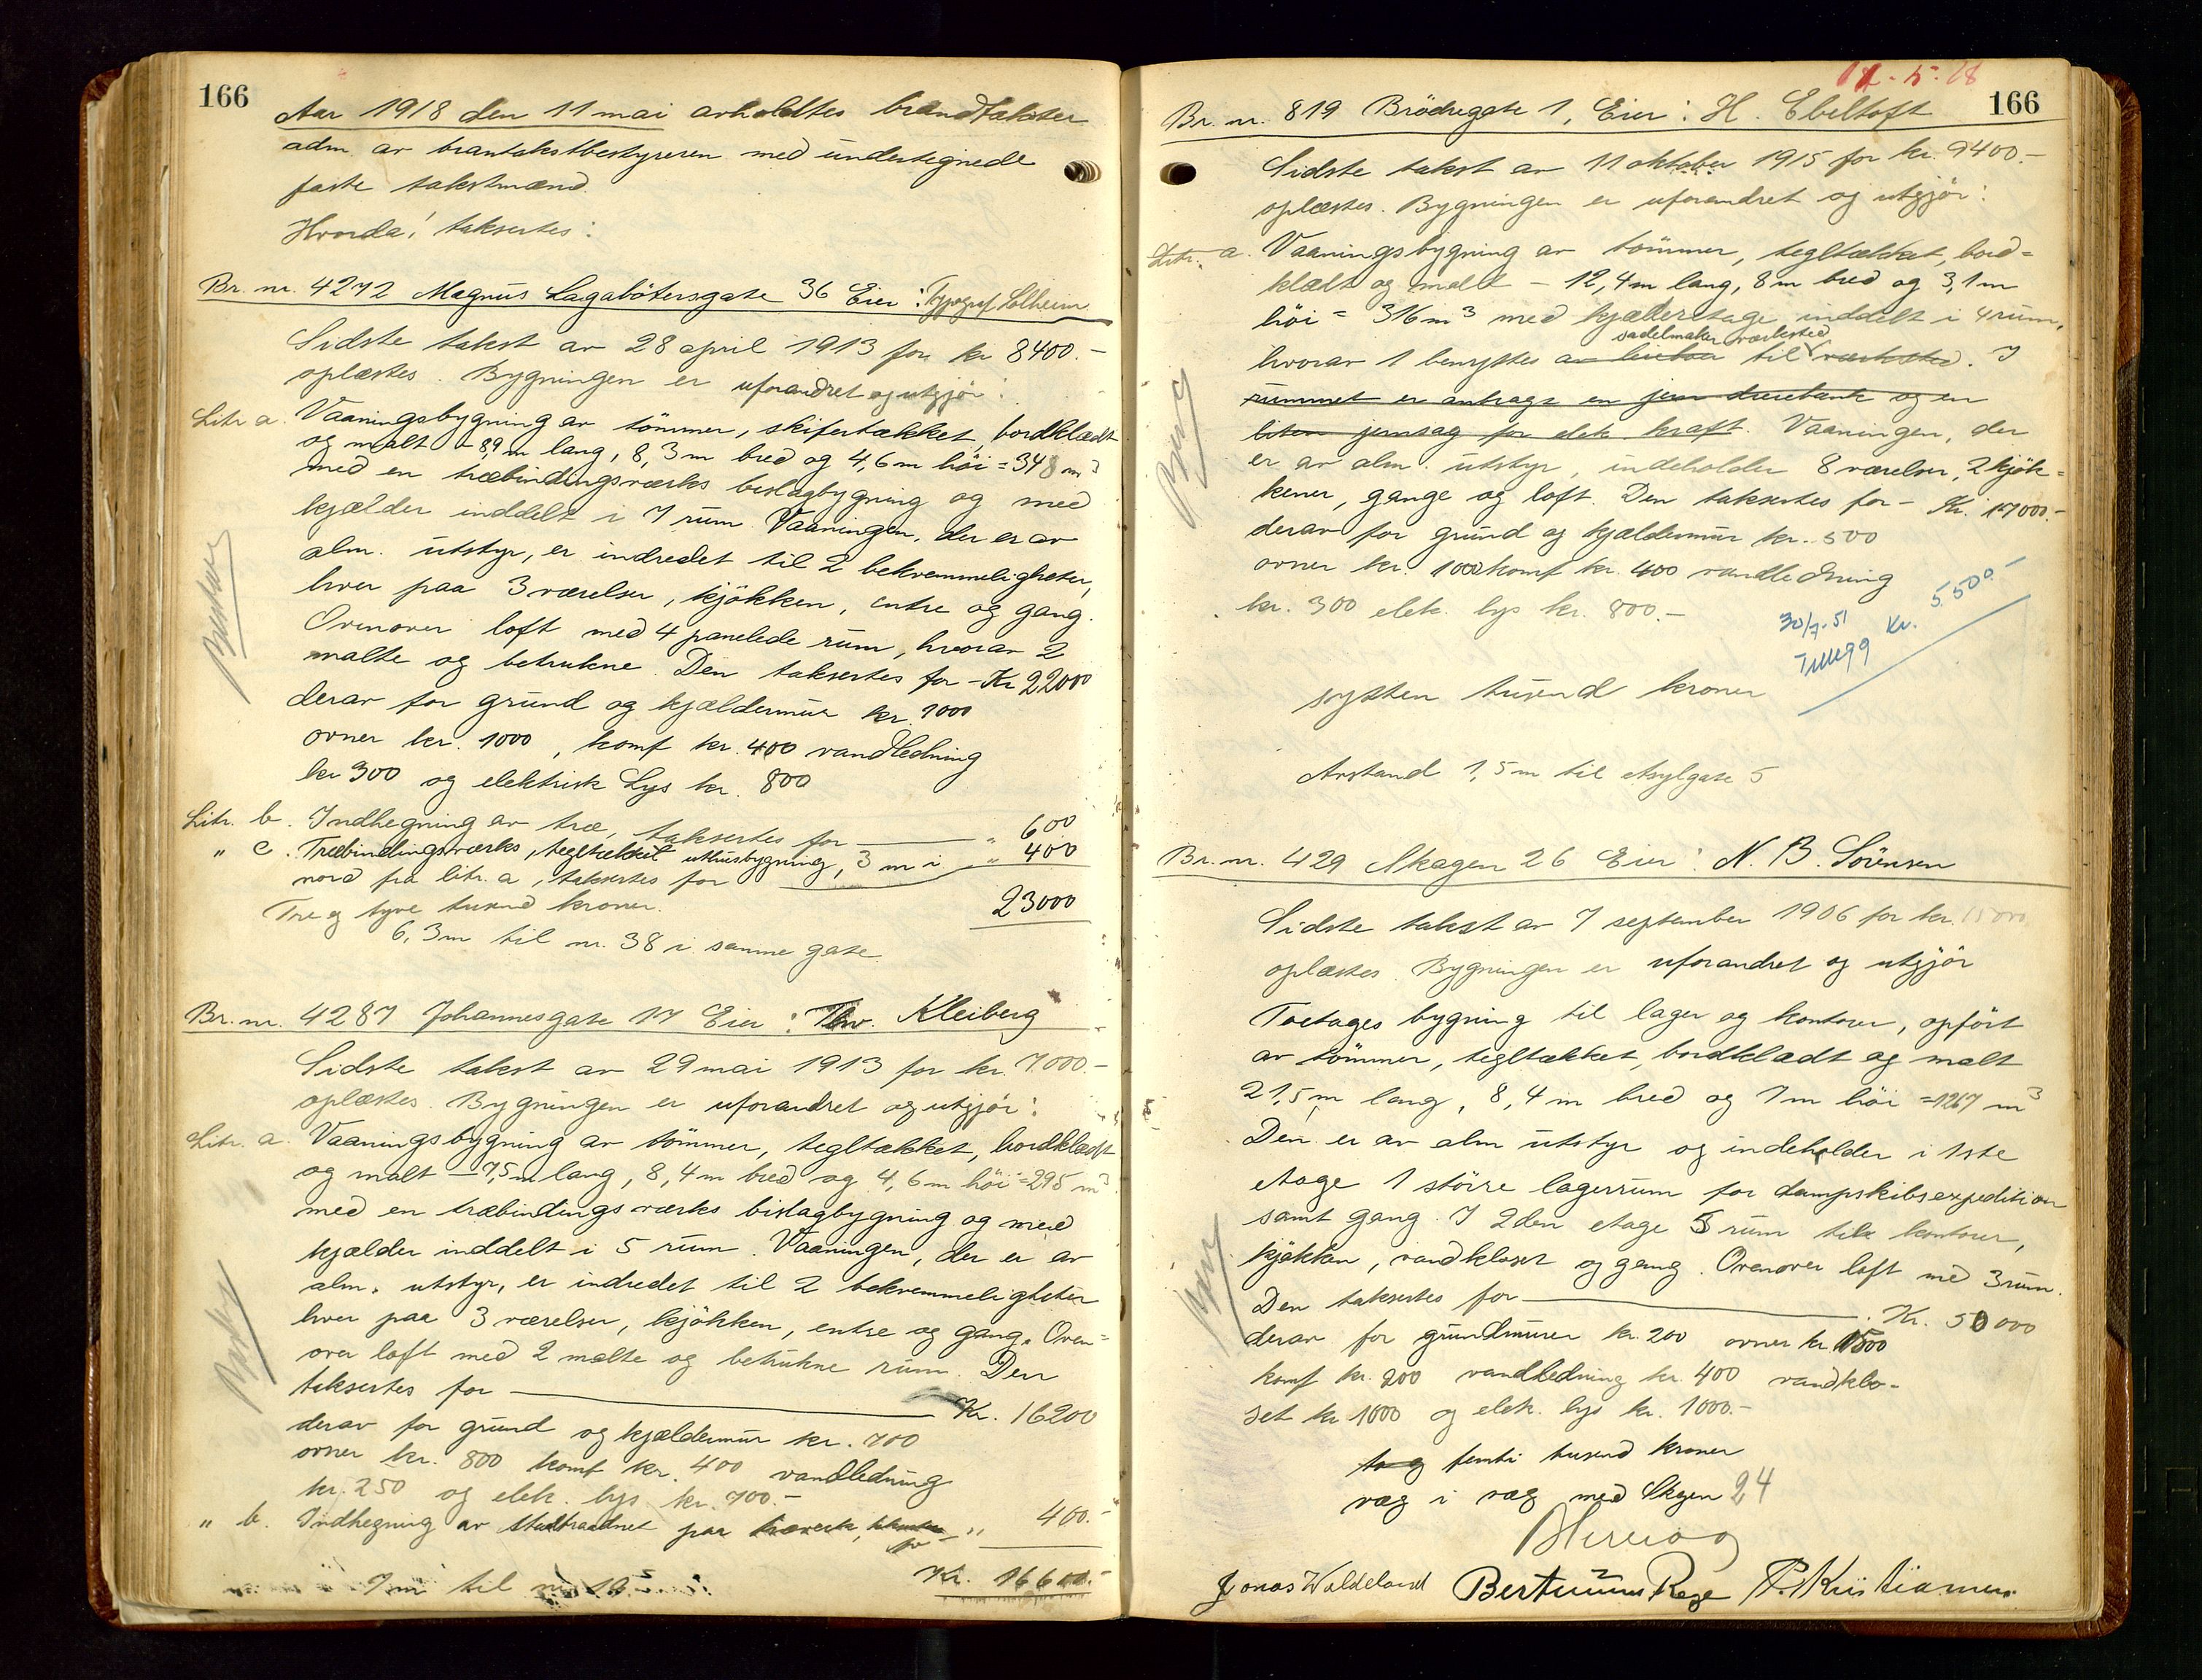 166
Aar 1918 den 11 mai avholdtes brandtakster
adm. av brantakstbestyreren med undertegnede
faste takstmænd.
Hvorda! taksertes:
Br. nr. 4272 Magnus Lagabötersgate 36 Eier: Typograf Solheim
Sidste takst av 28 april 1913 for kr 8400.-
oplæstes. Bygningen er uforandret og utgjör:
Litr a. Vaaningsbygning av tömmer, skifertækket, bordklædt
og malt - 8,9 m lang, 8,3 m bred og 4,6 m höi = 348 m³
med en træbindingsværks bislagbygning og med
kjælder inddelt i 7 rum. Vaaningen, der er av
alm. utstyr, er indredet til 2 bekvemmeligheter,
hver paa 3 værelser, kjökken, entre og gang.
Ovenover loft med 4 panelede rum, hvorav 2
malte og betrukne. Den taksertes for - Kr 22000
derav for grund og kjældermur kr. 1000
ovner kr. 1000, komf kr. 400 vandledning
kr 300 og elektrisk Lys kr. 800
Litr. b. Indhegning av træ, taksertes for " 600
" c. Træbindingsværks, tegltækket uthusbygning, 3 m i " 400
nord fra litr. a, taksertes for
23000
Tre og tyve tusend kroner.
6,3m til nr. 38 i samme gate
Br. nr. 4287 Johannesgate 17 Eier: Thv. Kleiberg
Sidste takst av 29 mai 1913 for kr. 7.000.-
oplæstes. Bygningen er uforandret og utgjör:
Litr. a. Vaaningsbygning av tömmer, tegltækket, bordklædt
og malt - 7,5 m lang, 8,4 m bred og 4,6 m höi = 295 m³
med en træbindingsværks bislagbygning og med
kjælder inddelt i 5 rum. Vaaningen, der er av
alm. utstyr, er indredet til 2 bekvemmeligheter
hver paa 3 værelser, kjökken, entre og gang. Oven=
over loft med 2 malte og betrukne rum. Den
taksertes for Kr. 16200
derav for grund og kjældermur kr. 700
ovner kr. 800 komf kr. 400 vandledning
kr. 250 og elek. lys kr. 700.-
" b. Indhegning av staaltraadnet paa træverk, " 400.-
7 m til nr 19
Kr. 16600.-
166
Br. nr. 819 Brödregate 1, Eier: H. Ebeltoft
Sidste takst av 11 oktober 1915 for kr. 9400.-
oplæstes. Bygningen er uforandret og utgjör:
Litr. a. Vaaningsbygning av tömmer, tegltækket, bord=
klædt og malt - 12,4 m lang, 8 m bred og 3,1 m
höi = 316 m³ med kjælderetage inddelt i 4 rum,
sadelmaker værksted
hvorav 1 benyttes til værksted. I
rummet er anbragt en jern dreiebenk og en
liten jernsag for elek. kraft. Vaaningen, der
er av alm. utstyr, indeholder 8 værelser, 2 kjök=
kener, gange og loft. Den taksertes for - Kr. 17000.-
derav for grund og kjældermur kr. 500
ovner kr. 1000 komf kr. 400 vandledning
kr. 300 elek. lys kr. 800.-
30/7-51
Tillegg Kr. 5.500.-
sytten tusend kroner
Avstand 1,5 m til Asylgate 5
Br. nr. 429 Skagen 26 Eier: N. B. Sörensen
Sidste takst av 7 september 1906 for kr. 15000
oplæstes. Bygningen er uforandret og utgjör
Toetages bygning til lager og kontorer, opfört
av tömmer, tegltækket, bordklædt og malt
21,5 m lang, 8,4 m bred og 7 m höi = 1267 m³
Den er av alm utstyr og indeholder i 1ste
etage 1 större lagerrum for dampskibsexpedition
samt gang. I 2den etage 5 rum til kontorer,
kjökken, vandkloset og gang. Ovenover loft med 3 rum.
Den taksertes for Kr. 50000
derav for grundmurer kr. 200 ovner kr 1500
komf kr. 200 vandledning kr. 400 vandklo-
set kr 1000 og elek. lys kr. 1000.-
to og femti tusend kroner
væg i væg med Skagen 24
Jonas Waldeland Bertinius Rege P. Kristiansen